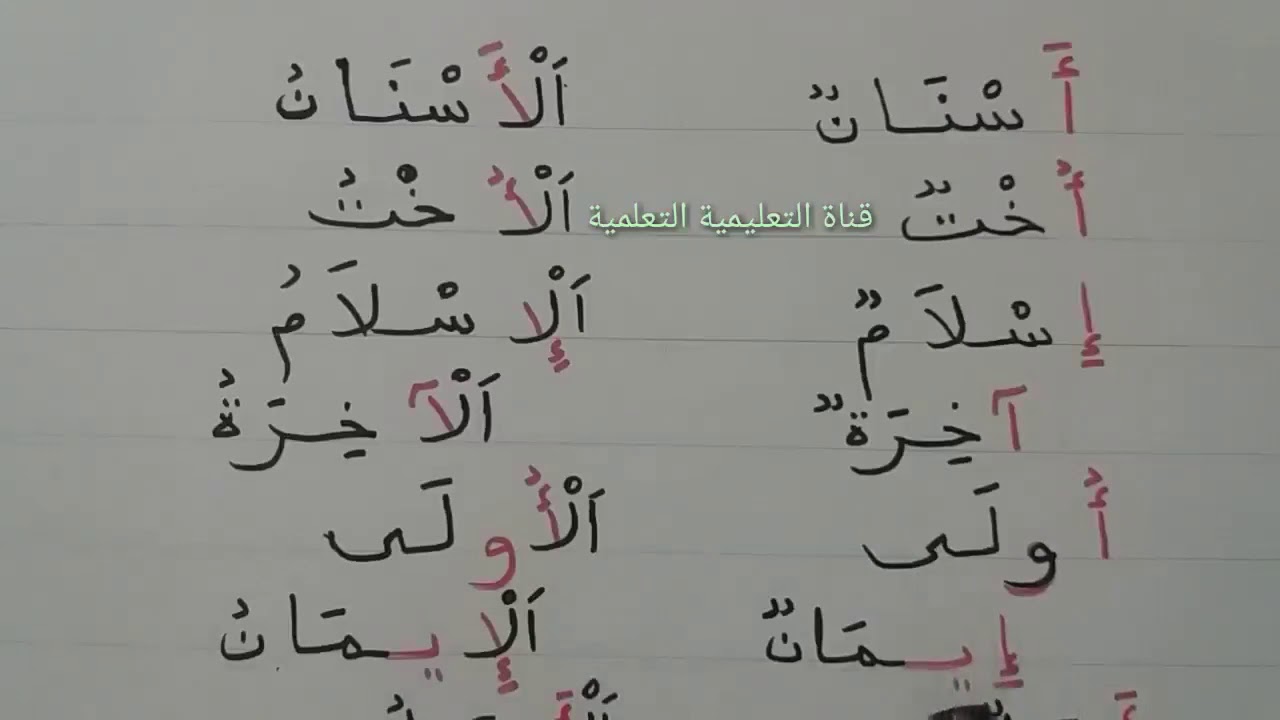 أَسْنَانٌ اَلْأَسْنَانُ
أُخْتٌ قناة التعليمية التعلمية اَلْأُخْتُ
إِسْلاَمٌ اَلْإِسْلاَمُ
آخِرَةٌ اَلْآخِرَةُ
أُولَى اَلْأُولَى
إِيمَانٌ اَلْإِيمَانُ